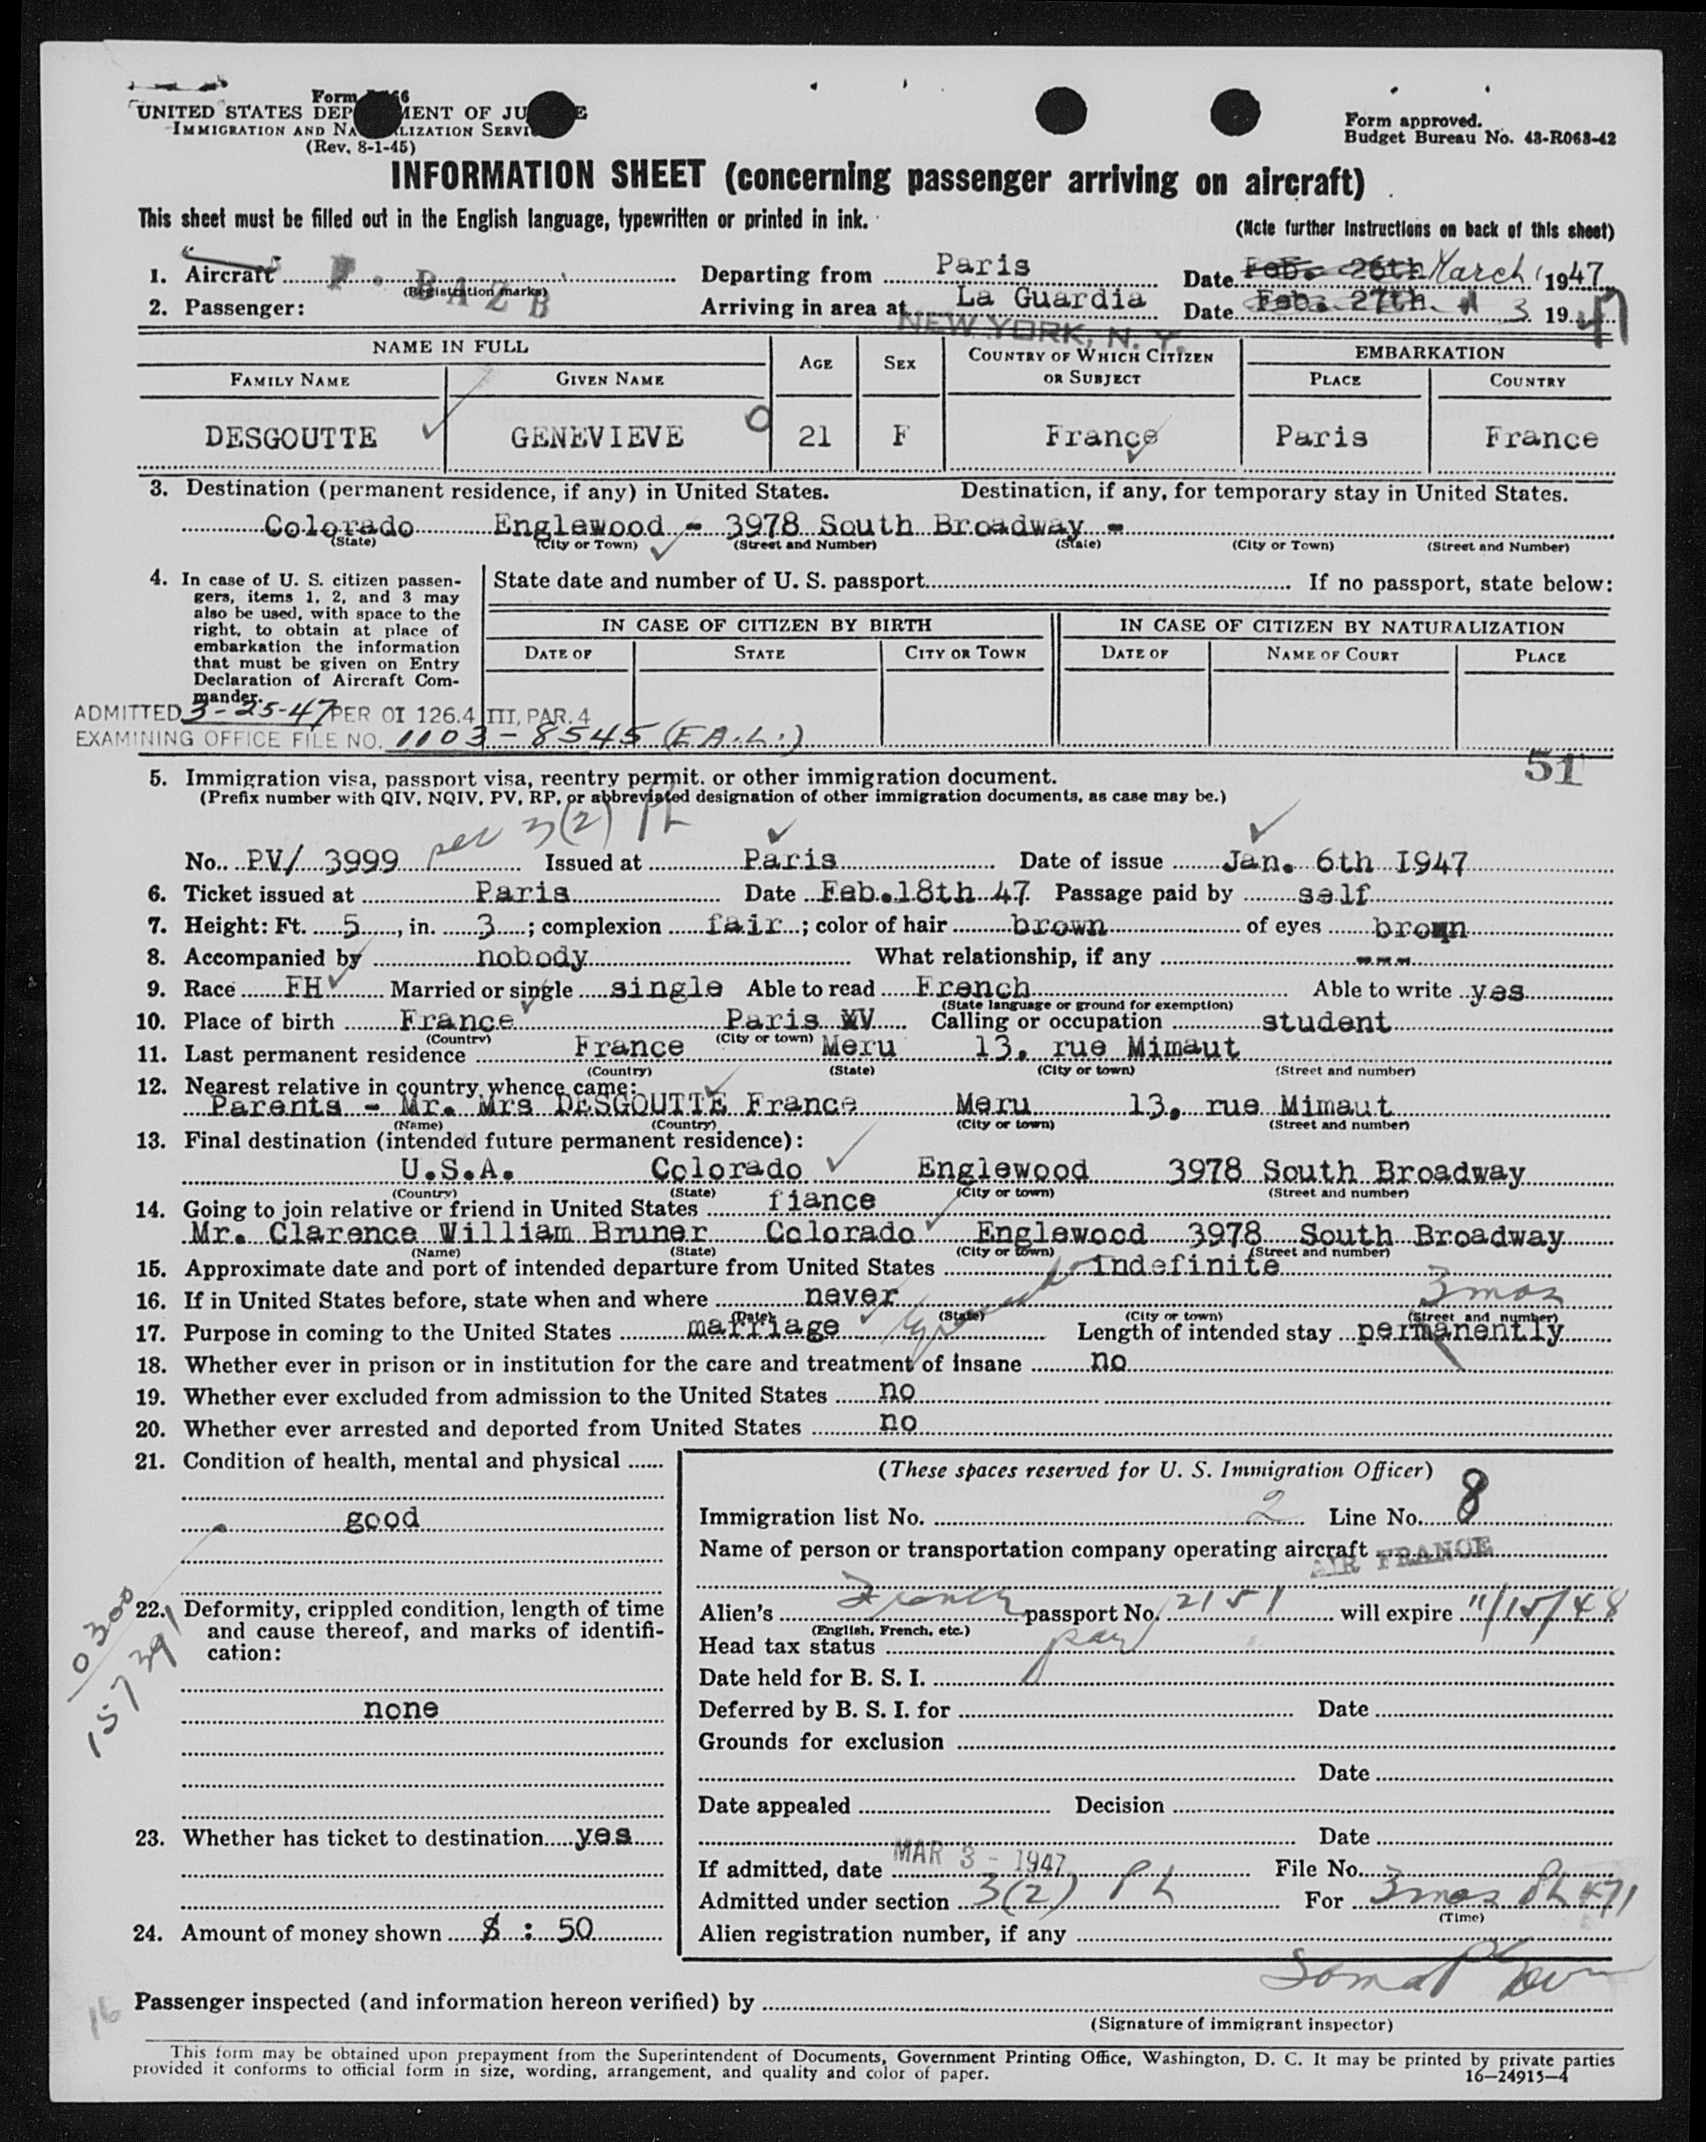 Form I-466
UNITED STATES DEPARTMENT OF JUSTICE
IMMIGRATION AND NATURALIZATION SERVICE
(Rev. 8-1-45)
Form approved.
Budget Bureau No. 43-R063-42
INFORMATION SHEET (concerning passenger arriving on aircraft)
This sheet must be filled out in the English language, typewritten or printed in ink.
(Note further instructions on back of this sheet)
1. Aircraft F. BAZB (Registration marks) Departing from Paris Date Feb. 26th March 1 1947
2. Passenger: Arriving in area at La Guardia Date Feb. 27th 3 1947
NEW YORK, N. Y.
NAME IN FULL AGE SEX COUNTRY OF WHICH CITIZEN OR SUBJECT EMBARKATION
FAMILY NAME GIVEN NAME PLACE COUNTRY
DESGOUTTE GENEVIEVE 21 F France Paris France
3. Destination (permanent residence, if any) in United States. Destination, if any, for temporary stay in United States.
Colorado Englewood - 3978 South Broadway -
(State) (City or Town) (Street and Number) (State) (City or Town) (Street and Number)
4. In case of U. S. citizen passengers, items 1, 2, and 3 may also be used, with space to the right, to obtain at place of embarkation the information that must be given on Entry Declaration of Aircraft Commander.
State date and number of U. S. passport If no passport, state below:
IN CASE OF CITIZEN BY BIRTH IN CASE OF CITIZEN BY NATURALIZATION
DATE OF STATE CITY OR TOWN DATE OF NAME OF COURT PLACE
ADMITTED 3-25-47 PER OI 126.4 III, PAR. 4
EXAMINING OFFICE FILE NO. 1103-8545 (E.A.L.)
51
5. Immigration visa, passport visa, reentry permit, or other immigration document.
(Prefix number with QIV, NQIV, PV, RP, or abbreviated designation of other immigration documents, as case may be.)
sec 3(2) PL
No. PV/ 3999 Issued at Paris Date of issue Jan. 6th 1947
6. Ticket issued at Paris Date Feb.18th 47 Passage paid by self
7. Height: Ft. 5, in. 3; complexion fair; color of hair brown of eyes brown
8. Accompanied by nobody What relationship, if any ---
9. Race FH Married or single single Able to read French Able to write yes
(State language or ground for exemption)
10. Place of birth France Paris XV Calling or occupation student
(Country) (City or town)
11. Last permanent residence France Meru 13. rue Mimaut
(Country) (State) (City or town) (Street and number)
12. Nearest relative in country whence came:
Parents - Mr. Mrs DESGOUTTE France Meru 13. rue Mimaut
(Name) (Country) (City or town) (Street and number)
13. Final destination (intended future permanent residence):
U.S.A. Colorado Englewood 3978 South Broadway
(Country) (State) (City or town) (Street and number)
14. Going to join relative or friend in United States fiance
Mr. Clarence William Bruner Colorado Englewood 3978 South Broadway
(Name) (State) (City or town) (Street and number)
15. Approximate date and port of intended departure from United States indefinite
16. If in United States before, state when and where never
(Date) (State) (City or town) (Street and number)
3 mos
17. Purpose in coming to the United States marriage Length of intended stay permanently
18. Whether ever in prison or in institution for the care and treatment of insane no
19. Whether ever excluded from admission to the United States no
20. Whether ever arrested and deported from United States no
21. Condition of health, mental and physical
good
22. Deformity, crippled condition, length of time and cause thereof, and marks of identification:
none
0300
157391
23. Whether has ticket to destination yes
24. Amount of money shown $ : 50
(These spaces reserved for U. S. Immigration Officer)
Immigration list No. 2 Line No. 8
Name of person or transportation company operating aircraft AIR FRANCE
Alien's French passport No. 2151 will expire 11/15/48
(English, French, etc.)
Head tax status pay
Date held for B. S. I.
Deferred by B. S. I. for Date
Grounds for exclusion
Date
Date appealed Decision
Date
If admitted, date MAR 3 - 1947 File No.
Admitted under section 3(2) PL For 3 mos
(Time)
Alien registration number, if any
16
Passenger inspected (and information hereon verified) by
(Signature of immigrant inspector)
This form may be obtained upon prepayment from the Superintendent of Documents, Government Printing Office, Washington, D. C. It may be printed by private parties
provided it conforms to official form in size, wording, arrangement, and quality and color of paper.
16—24915-4